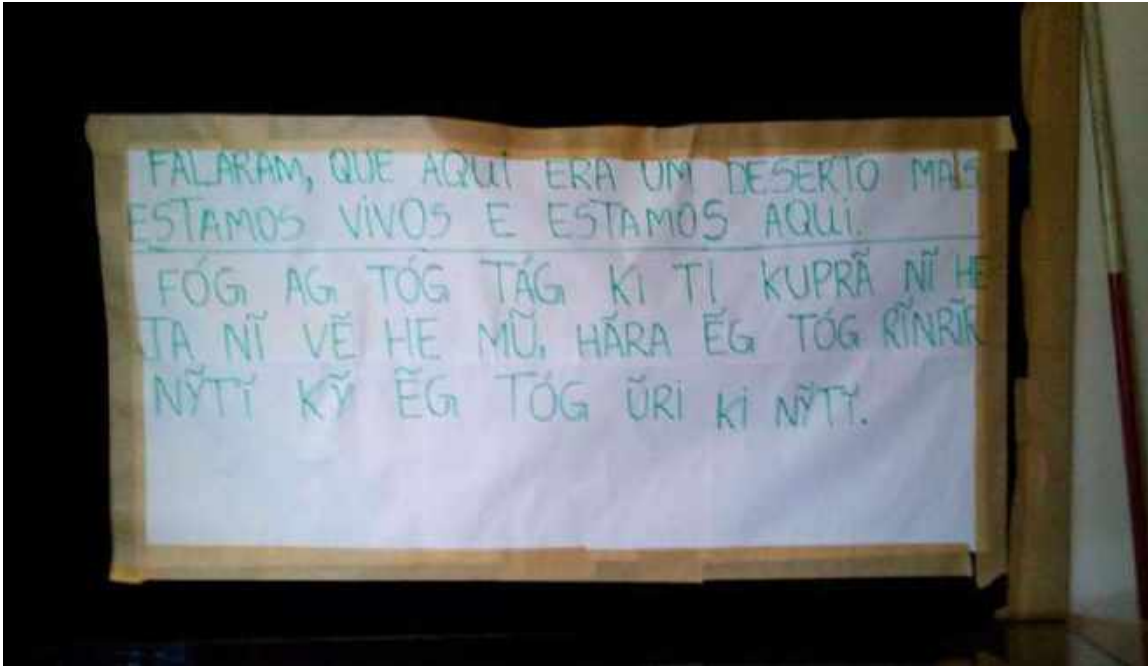 FALARAM, QUE AQUI ERA UM DESERTO MAS
ESTAMOS VIVOS E ESTAMOS AQUI.
FÓG AG TÓG TÁG KI TI KUPRÃ NĨ HE
JA NĨ VẼ HE MŨ. HÃRA ẼG TÓG RĨNRĨR
NỸTĨ KỸ ẼG TÓG ŨRI KI NỸTỸ.